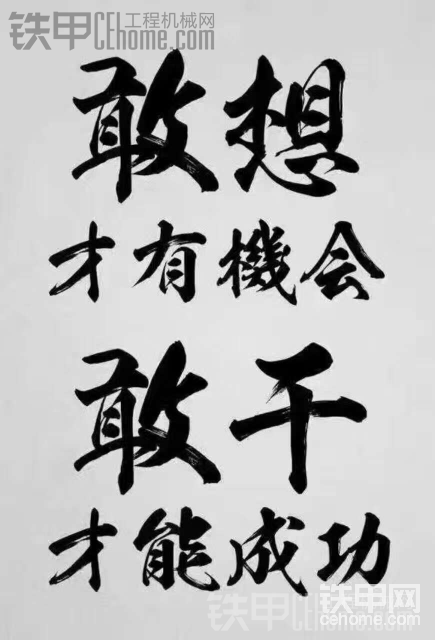 铁甲 工程机械网
CEhome.com
敢想
才有機会
敢干
才能成功
铁甲CEhome
铁甲网
cehome.com